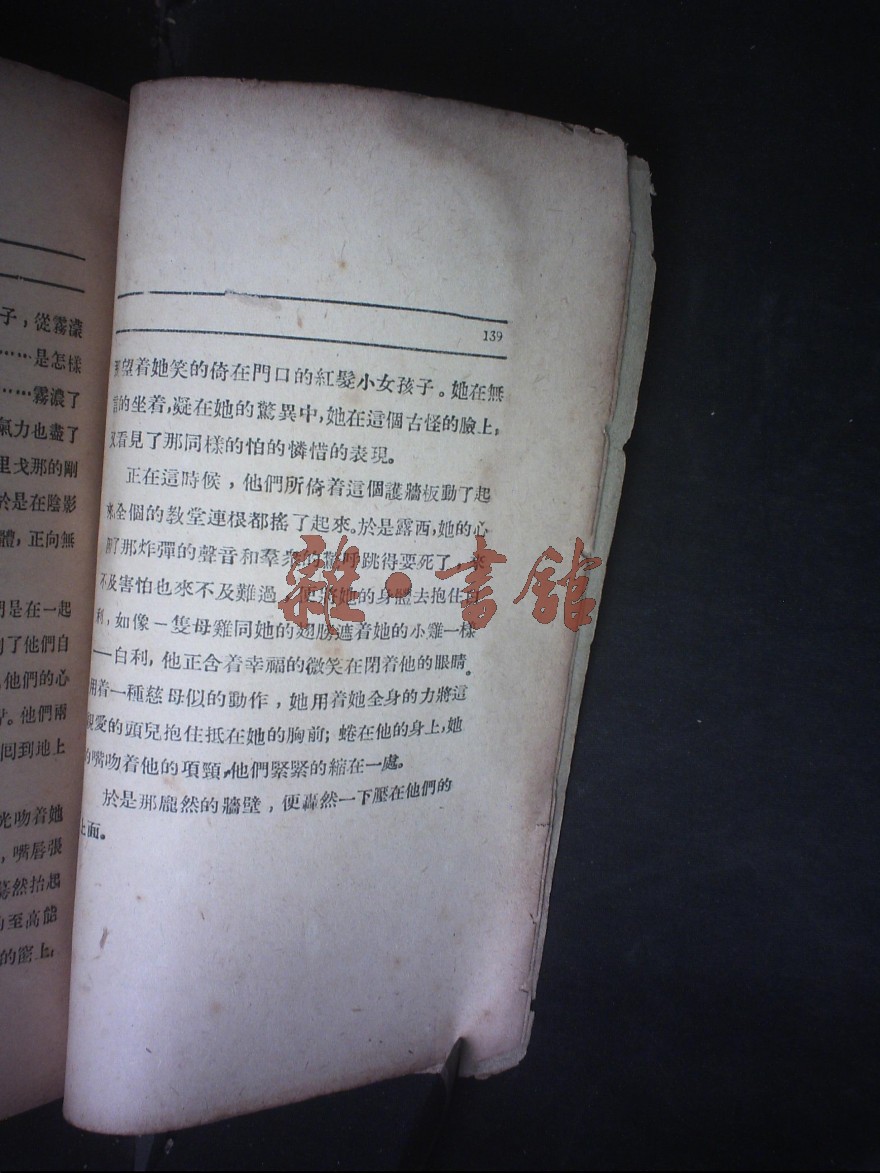 子，從霧濛
……是怎樣
……霧濃了
氣力也盡了
里戈那的剛
於是在陰影
體，正向無
們是在一起
了他們自
他們的心
。他們兩
回到地上
光吻着她
，嘴唇張
驀然抬起
至高
的
139
望着她笑的倚在門口的紅髮小女孩子。她在無
言的坐着，凝在她的驚異中，她在這個古怪的臉上，
又看見了那同樣的怕的憐惜的表現。
正在這時候，他們所倚着這個護牆板動了起
來全個的教堂連根都搖了起來。於是露西，她的心
了那炸彈的聲音和羣衆的驚呼跳得要死了，來
不及害怕也來不及難過，便將她的身體去抱住白
利，如像一隻母雞同她的翅膀遮着她的小雞一樣
——白利，他正含着幸福的微笑在閉着他的眼睛。
用着一種慈母似的動作，她用着她全身的力將這
親愛的頭兒抱住抵在她的胸前；蜷在他的身上，她
的嘴吻着他的項頸，他們緊緊的縮在一處。
於是那龐然的牆壁，便轟然一下壓在他們的
上面。
雜·書館